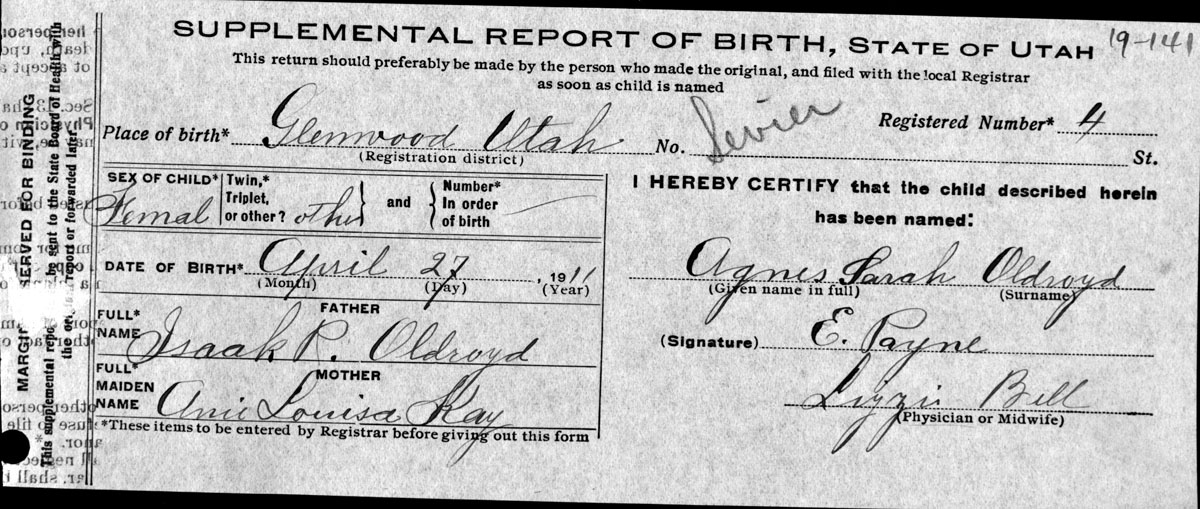 SUPPLEMENTAL REPORT OF BIRTH, STATE OF UTAH 19-141
This return should preferably be made by the person who made the original, and filed with the local Registrar
as soon as child is named
Place of birth* Glenwood Utah No. Sevier St.
(Registration district)
Registered Number* 4
SEX OF CHILD* Femal
Twin,* Triplet, or other? other } and { Number* In order of birth
DATE OF BIRTH* April 27, 1911
(Month) (Day) (Year)
FATHER
FULL* NAME Isaak R. Oldroyd
MOTHER
FULL* MAIDEN NAME Anie Louisa Kay
*These items to be entered by Registrar before giving out this form
I HEREBY CERTIFY that the child described herein
has been named:
Agnes Sarah Oldroyd
(Given name in full) (Surname)
(Signature) E. Payne
Lizzie Bell
(Physician or Midwife)
MARGIN SERVED FOR BINDING
*This supplemental repo be sent to the State Board of Health with
the ori report or forwarded later